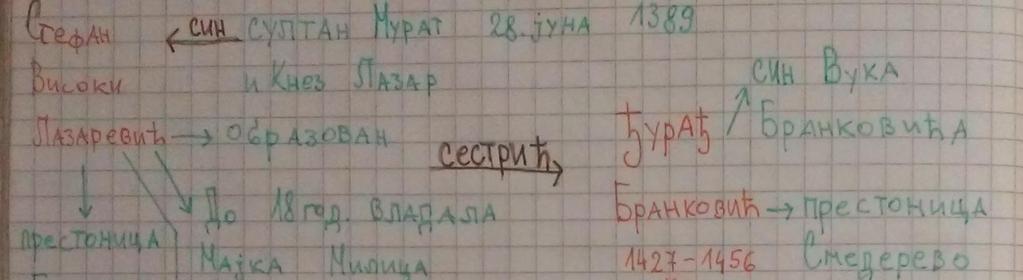 Стефан ← син султан Мурат 28. јуна 1389
Високи и Кнез Лазар
Лазаревић → образован
До 18 год. владала
Мајка Милица
престоница
сестрић →
син Вука
Бранковића
Ђурађ
Бранковић → престоница
1427-1456 Смедерево